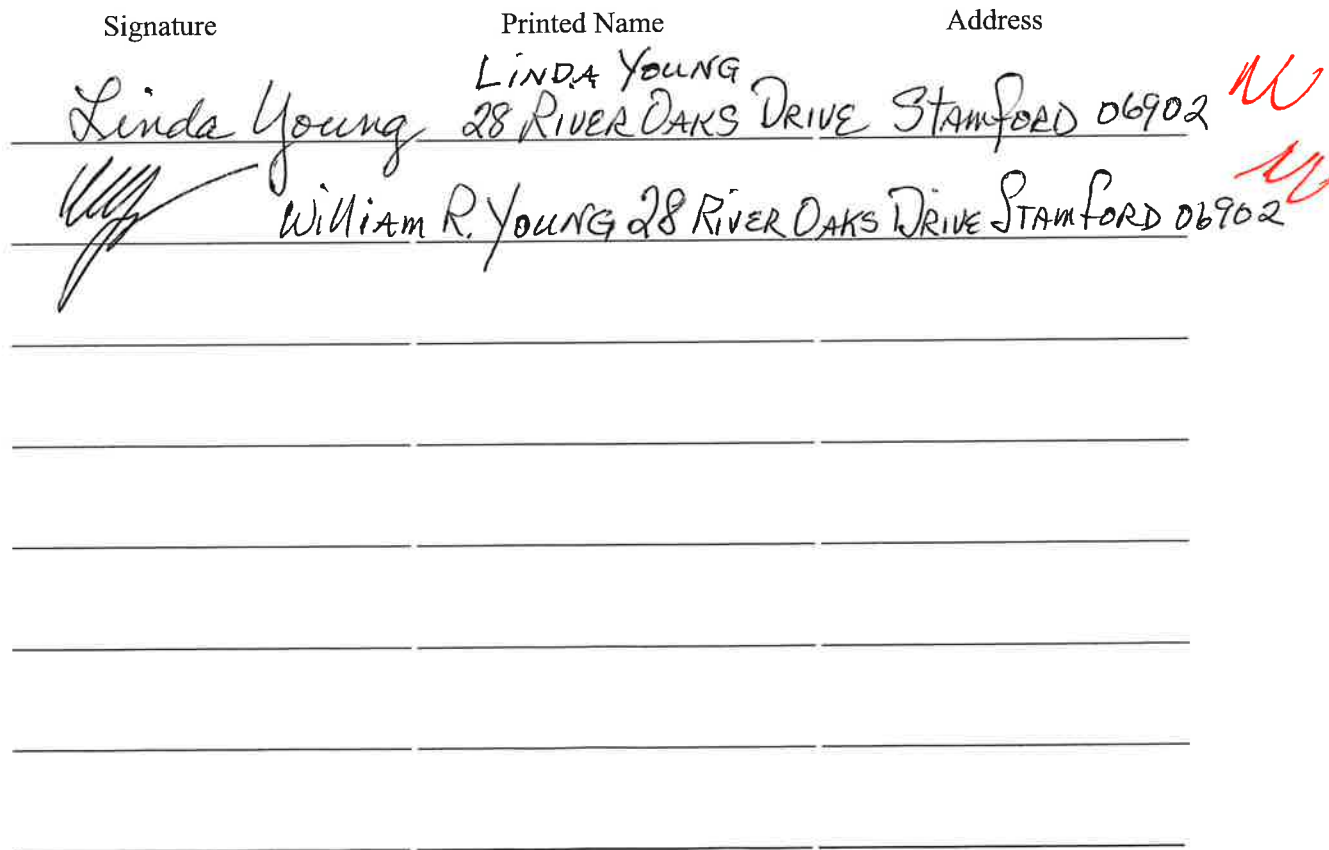 Signature Printed Name Address
LINDA YOUNG
Linda Young 28 RIVER OAKS DRIVE STAMFORD 06902
WilliAm R. YOUNG 28 RIVER OAKS DRIVE STAMFORD 06902